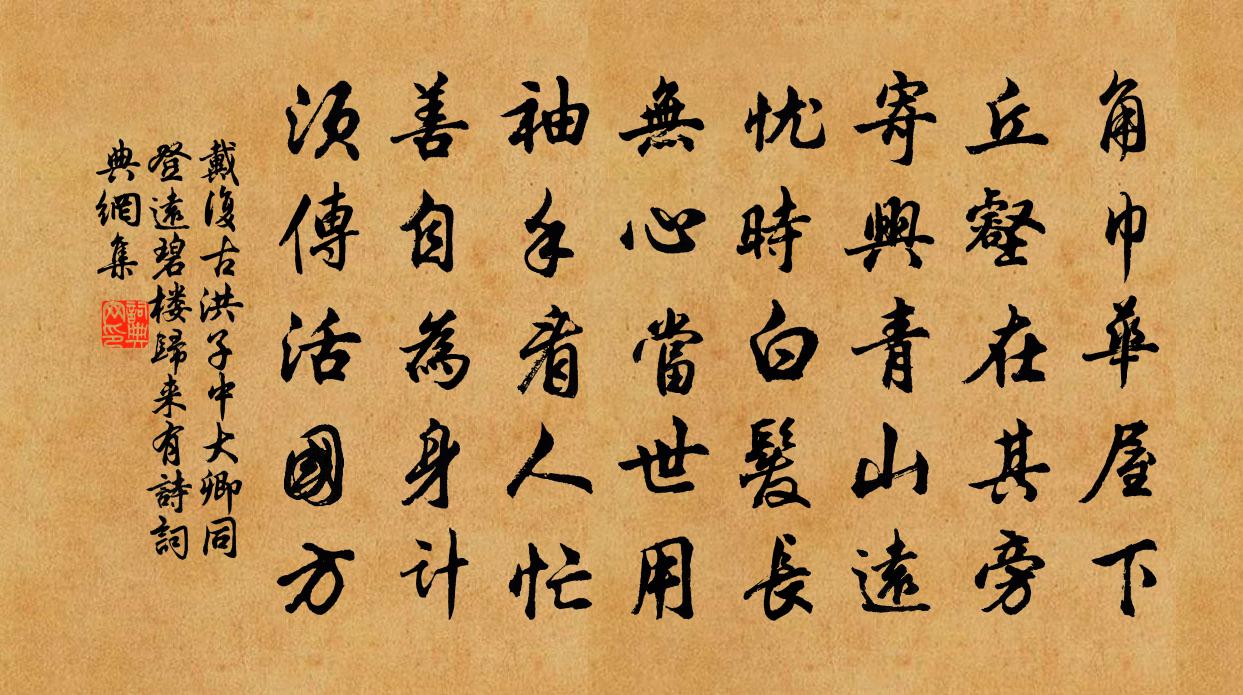 角巾華屋下
丘壑在其旁
寄興青山遠
忧時白髮長
無心當世用
袖手看人忙
善自為身計
須傳活國方
戴復古洪子中大卿同
登遠碧楼歸来有詩詞
典網集
詞典